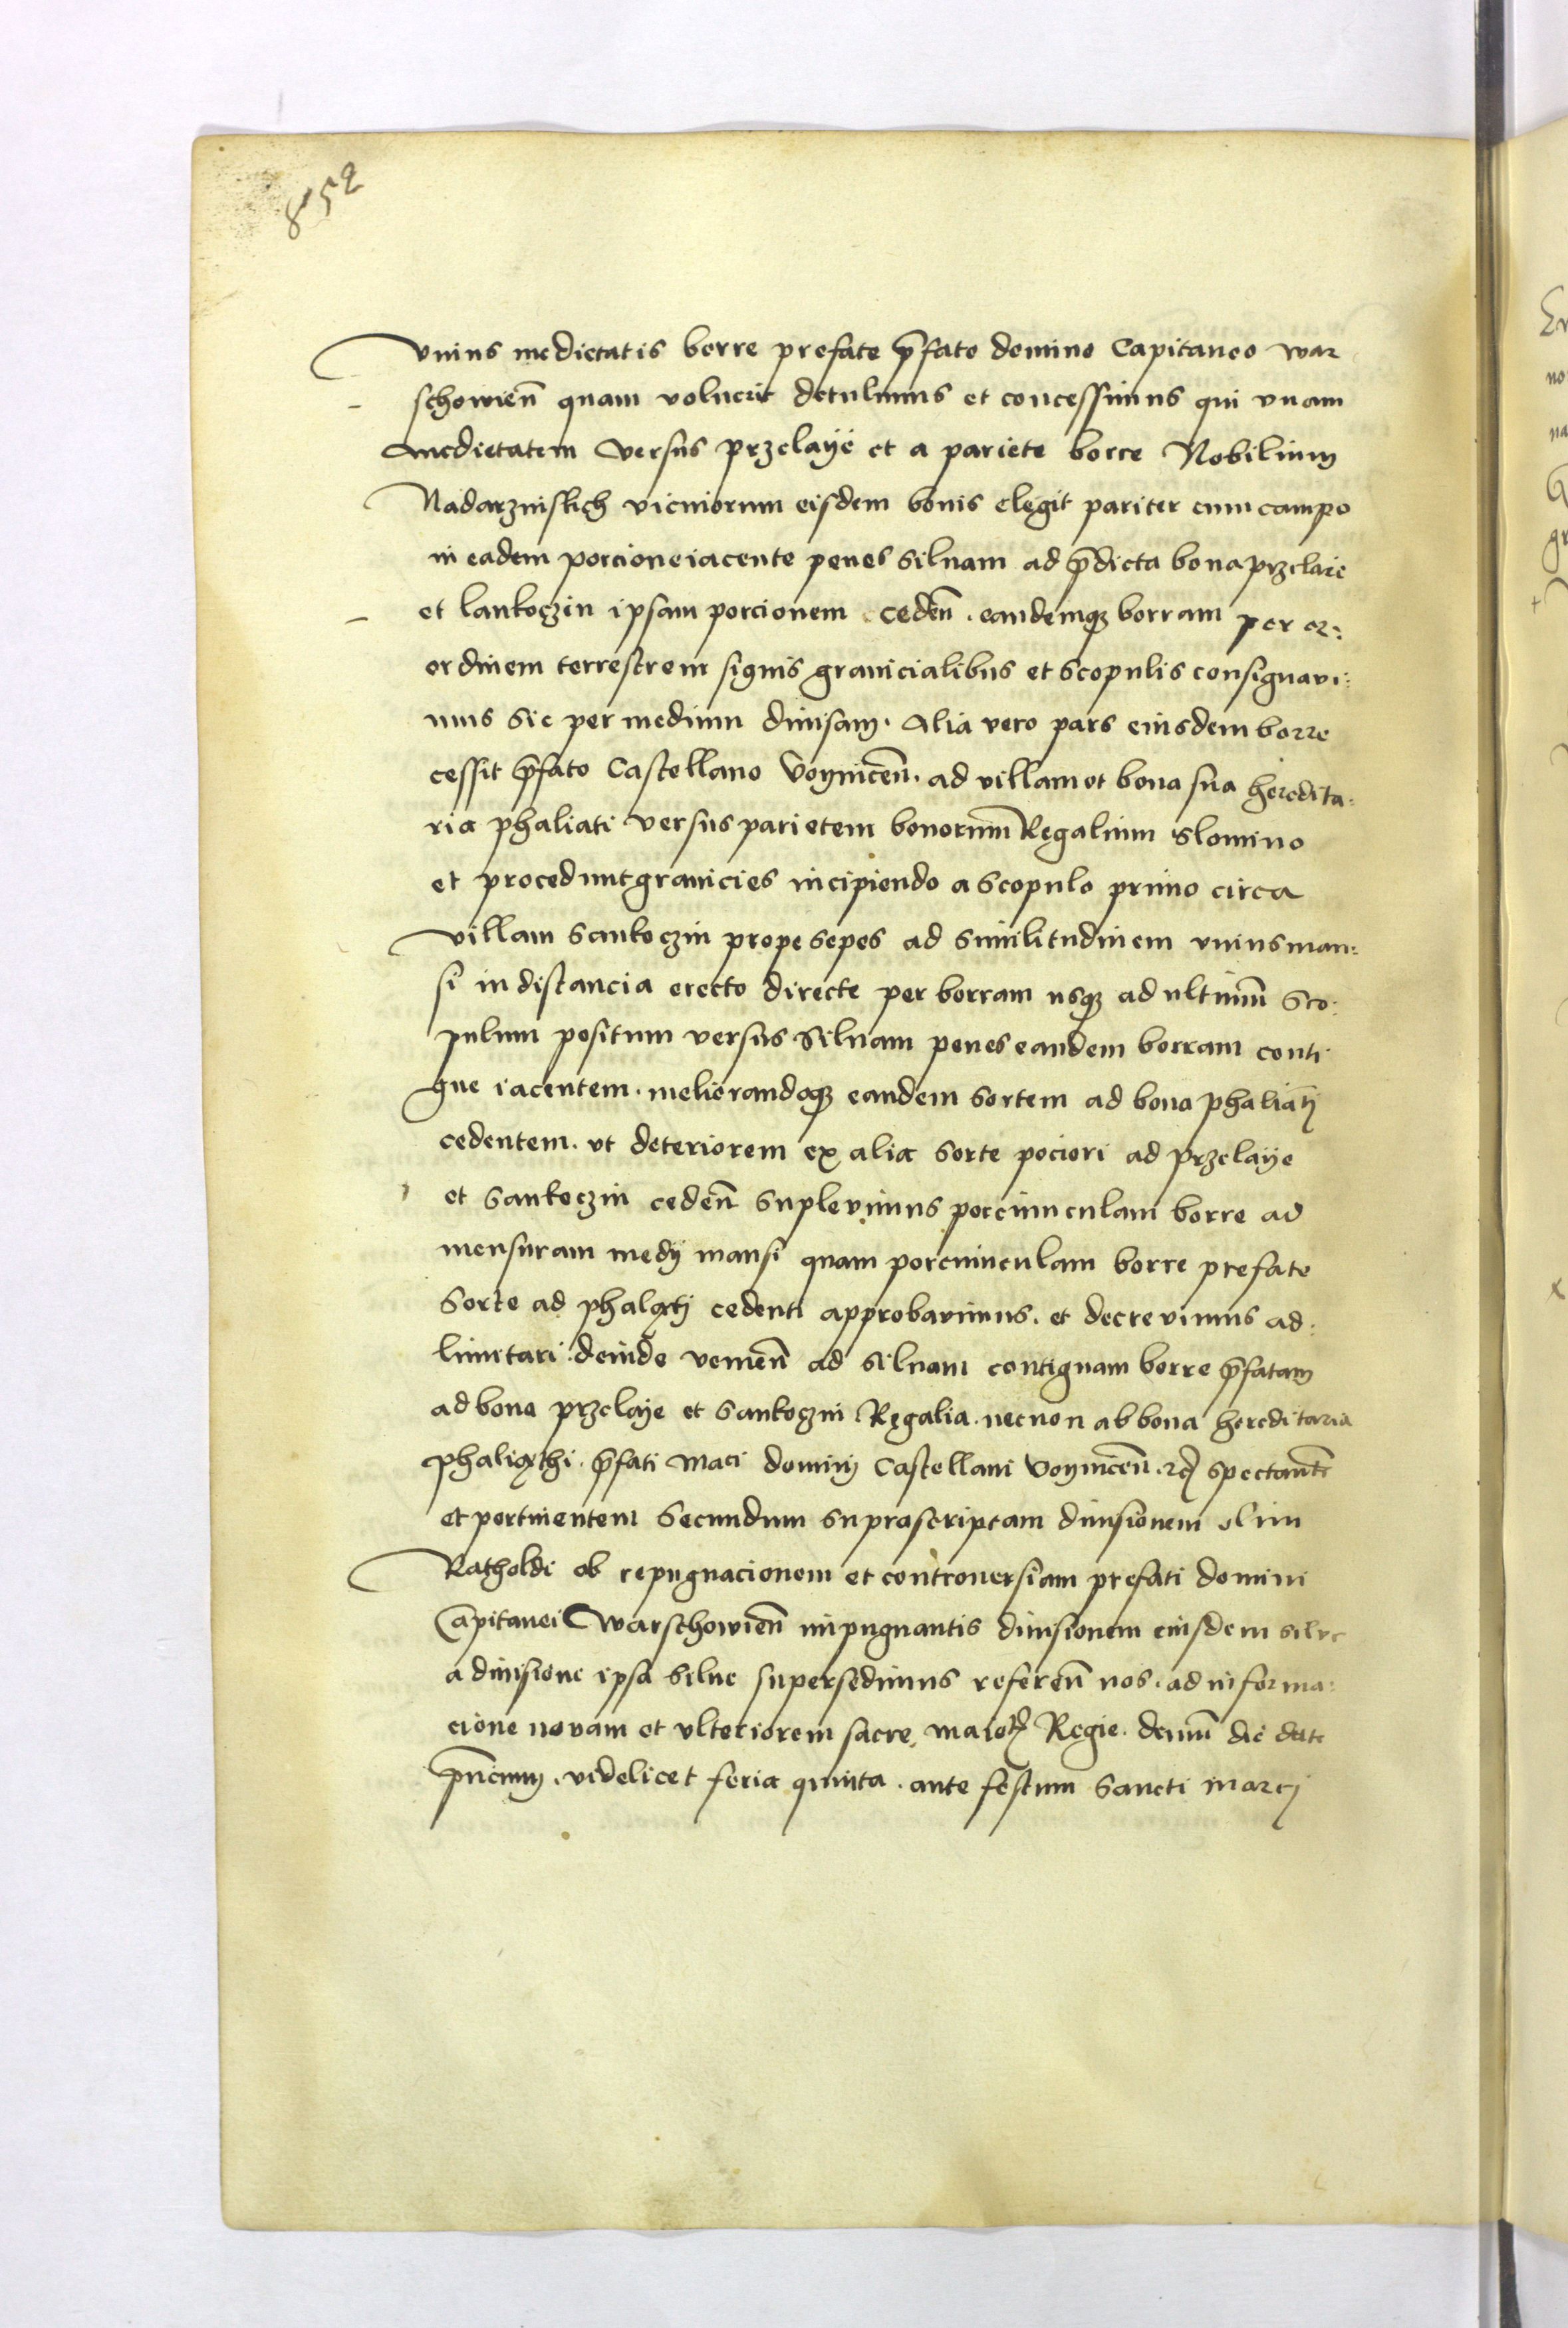 852
vnius medietatis borre prefate p̄fato domino Capitaneo war
schowien̄ quam voluerit detulimus et concessimus qui vnam
medietatem versus przelaÿe et a pariete borre Nobilium
Nadarzinskich vicniorum eisdem bonis elegit pariter cum campo
in eadem porcione iacente penes siluam ad p̄dicta bona przelaie
et lankoczin ipsam porcionem ceden̄ . eandemq₃ borram per or:
ordinem terrestrem signis granicialibus et scopulis consignaui:
mus sic per medium diuisam. Alia vero pars eiusdem borre
cessit p̄fato Castellano Voynicen̄. ad villam et bona sua heredita:
ria phaliati versus parietem bonorum̄ Regalium slomino
et procedunt granicies incipiendo a scopulo primo circa
villam sankoczin prope sepes ad similitudinem vnius man:
si in distancia erecto directe per borram usq₃ ad ultimū sco:
pulum positum versus siluam penes eandem borram conti
gue iacentem. meliorandoq₃ eandem sortem ad bona phaliatj
cedentem. ut deteriorem ex alia sorte pociori ad przelaÿe
et sankoczin ceden̄ supleuimus porciunculam borre ad
mensuram medÿ mansi quam porciunculam borre prefate
sorte ad phalatj cedenti approbauimus. et decreuimus ad:
limitari. deinde venien̄ ad siluam contiguam borre p̄fatam
ad bona przelaye et sankoczin Regalia. necnon ab bona hereditaria
phaliathi. p̄fati Maci domini Castellani Voynicen̄. spectan̄t
et pertinentem secundum suprascriptam diuisionem olim
Ratholdi ob repugnacionem et controuersiam prefati domini
Capitanei Warschowien̄ impugnantis diuisionem eiusdem silue
a diuisione ipsa silue supersedimus referen̄ nos. ad informa:
cione nouam et vlteriorem sacre. Regie. demū die date
p̄ncium. videlicet feria quinta. ante festum sancti marcj